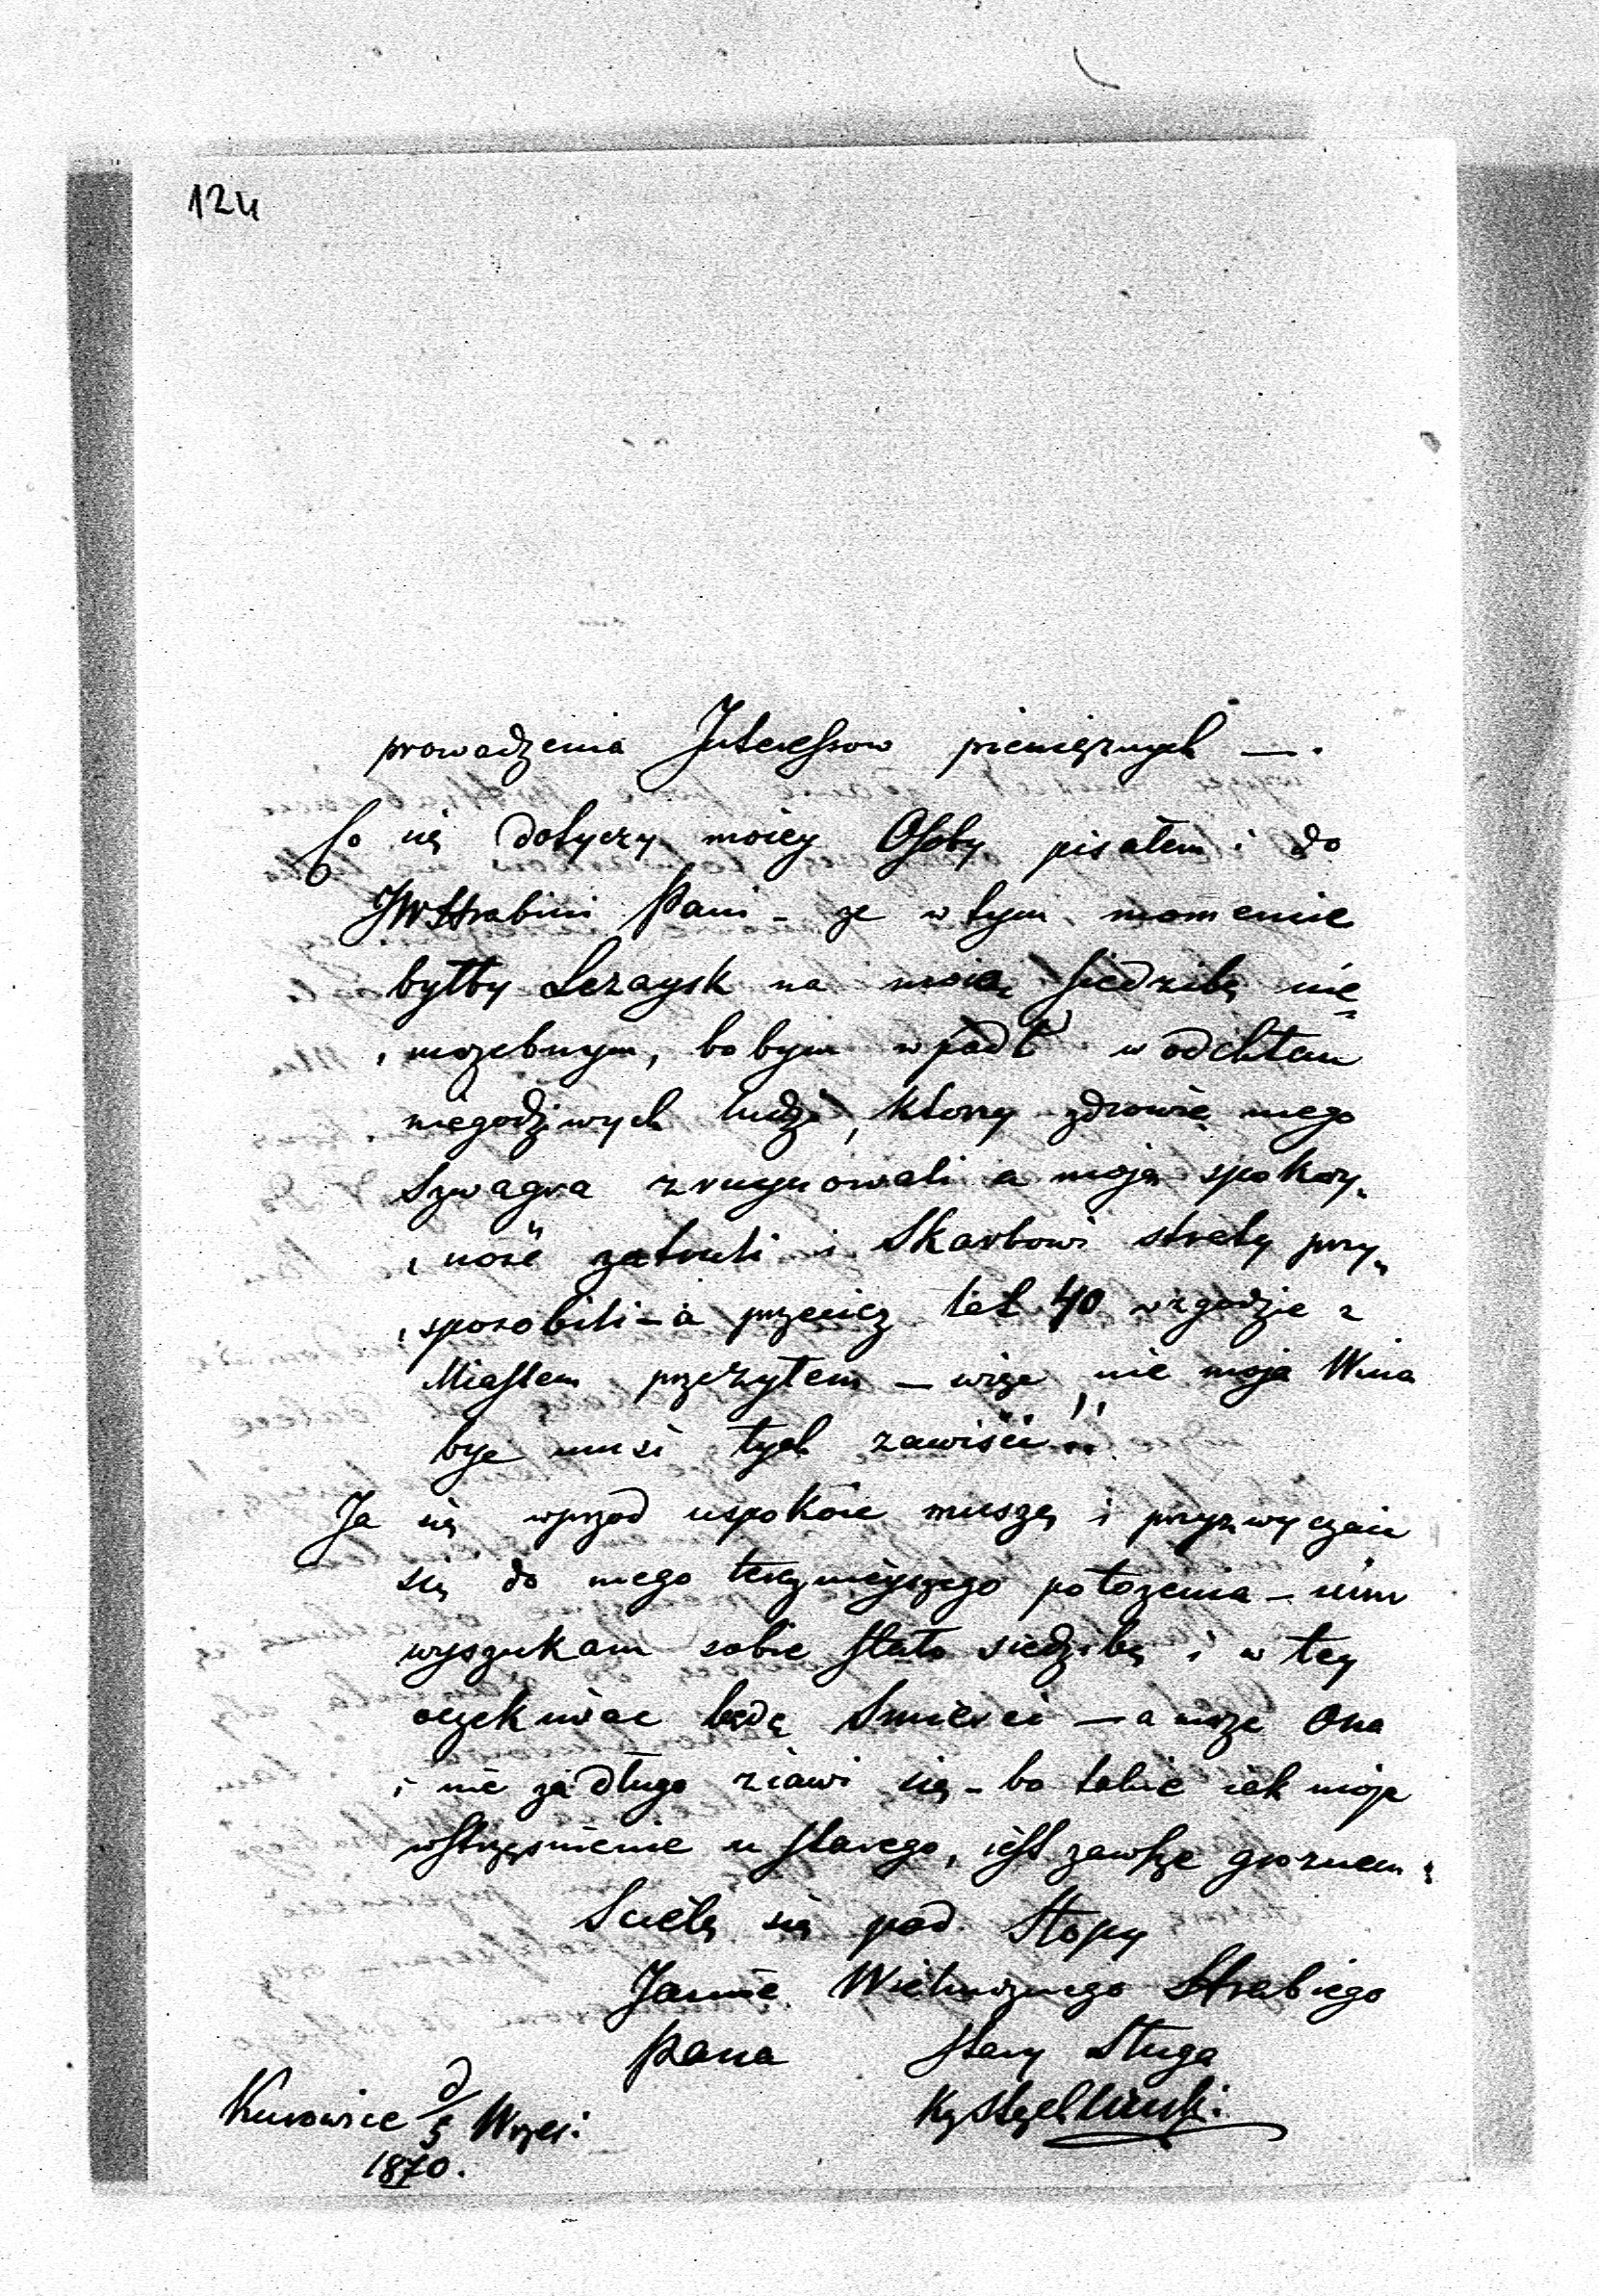 124
prowadzenia Interessow pieniężnych —.
Co się dotyczy moiey Osoby pisałem i do
JWHrabini Pani - ze w tym momencie
byłby Leżaysk na moią siedzibę nie
mozebnym, bo bym wpadł w odchłan
niegodziwych ludzi, ktorzy zdrowie mego
Szwagra zruynowali a moją spokoy„
„ność zatruli i Skarbowi straty przy„
„sposobili - a przeciez lat 40 w zgodzie z
Miastem przeżyłem — więc nie moja Wina
być musi tych zawiści!!
Ja się wprzod uspokoic muszę i przyzwyczaic
się do mego terazniéyszego położenia — nim
wyszukam sobie stałą siedzibę i w tey
oczekiwac będę Smierci — a może Ona
i nie za długo ziawi się - bo takie iak moje
wstrząsnienie u starego, iest zawsze groznem
Scielę się pod Stopy
Jaśnie Wielmożnego Hrabiego
Pana stary Sługa
Kurowice d/5 Wrześ:
1870.